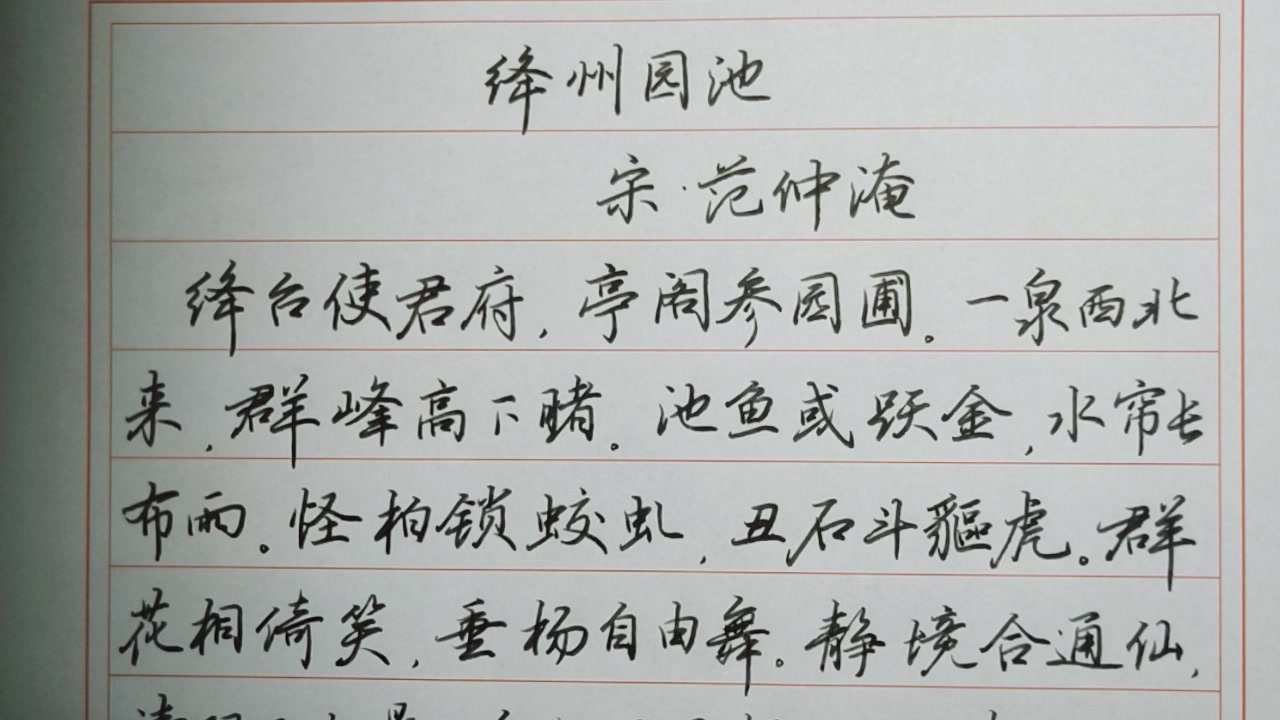 绛州园池
宋·范仲淹
绛台使君府,亭阁参园圃。一泉西北
来,群峰高下睹。池鱼或跃金,水帘长
布雨。怪柏锁蛟虬,丑石斗驱虎。群
花相倚笑,垂杨自由舞。静境合通仙,